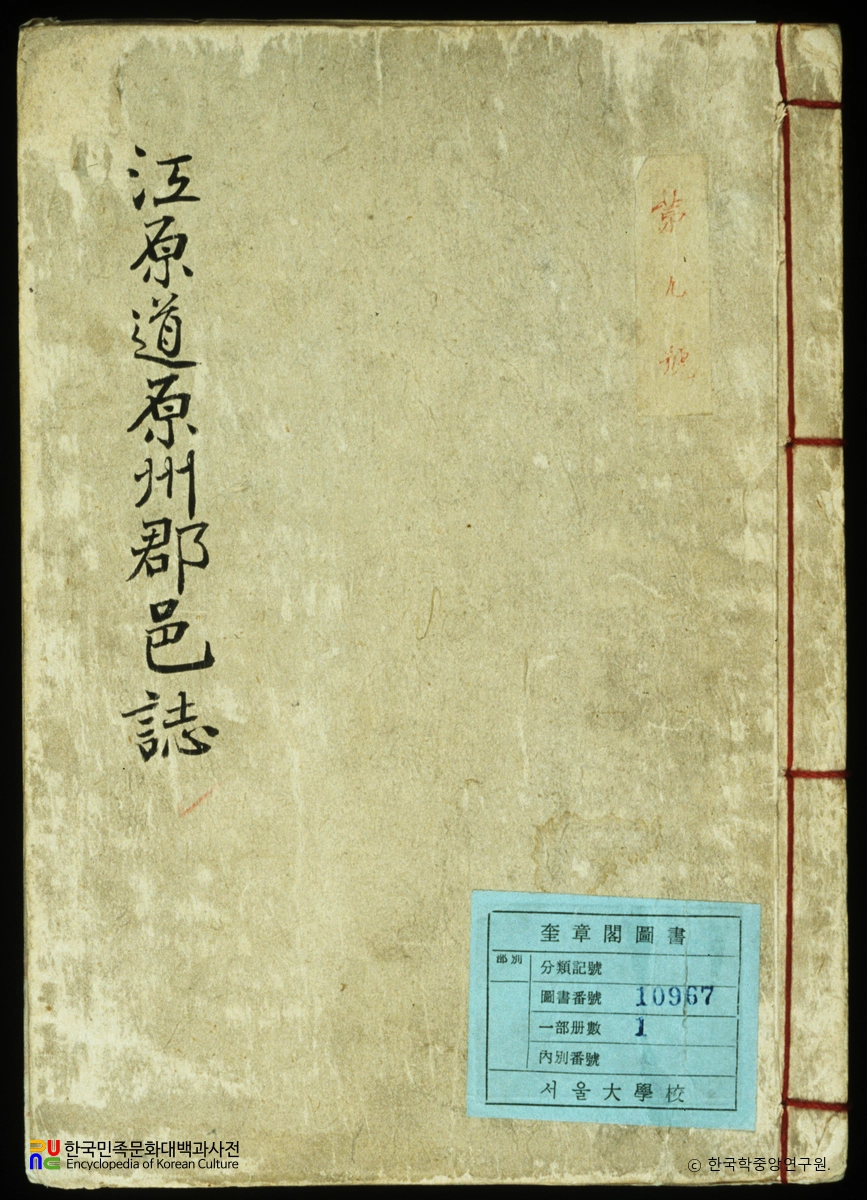 江原道原州郡邑誌
第九號
奎章閣圖書
部別
分類記號
圖書番號 10967
一部册數 1
內別番號
서울大學校
한국민족문화대백과사전
Encyclopedia of Korean Culture
© 한국학중앙연구원.